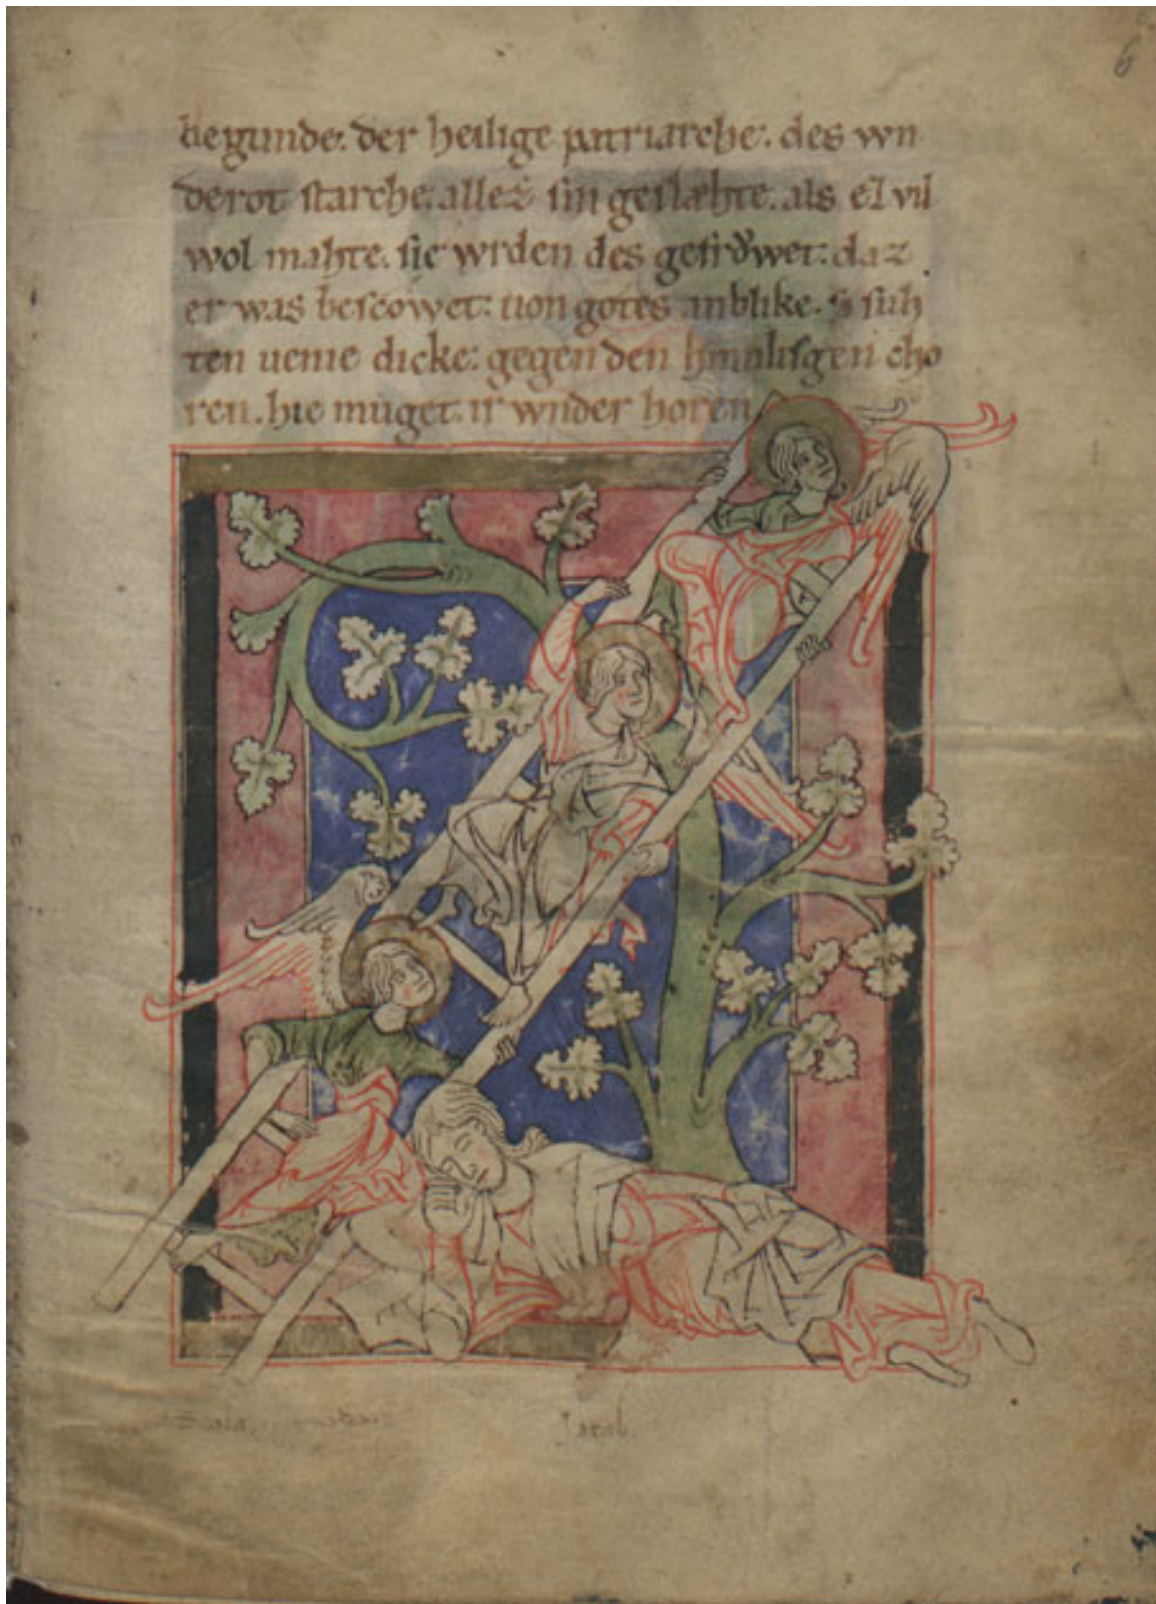 6
begunde. der heilige patriarche. des wn
derot starche. allez sin geslæhte. als ez vil
wol mahte. sie wrden des gefrowet: daz
er was bescowet: uon gotes anblike. suh
ten ueme dicke: gegen den himilisgen cho
ren. hie muget ir wnder horen